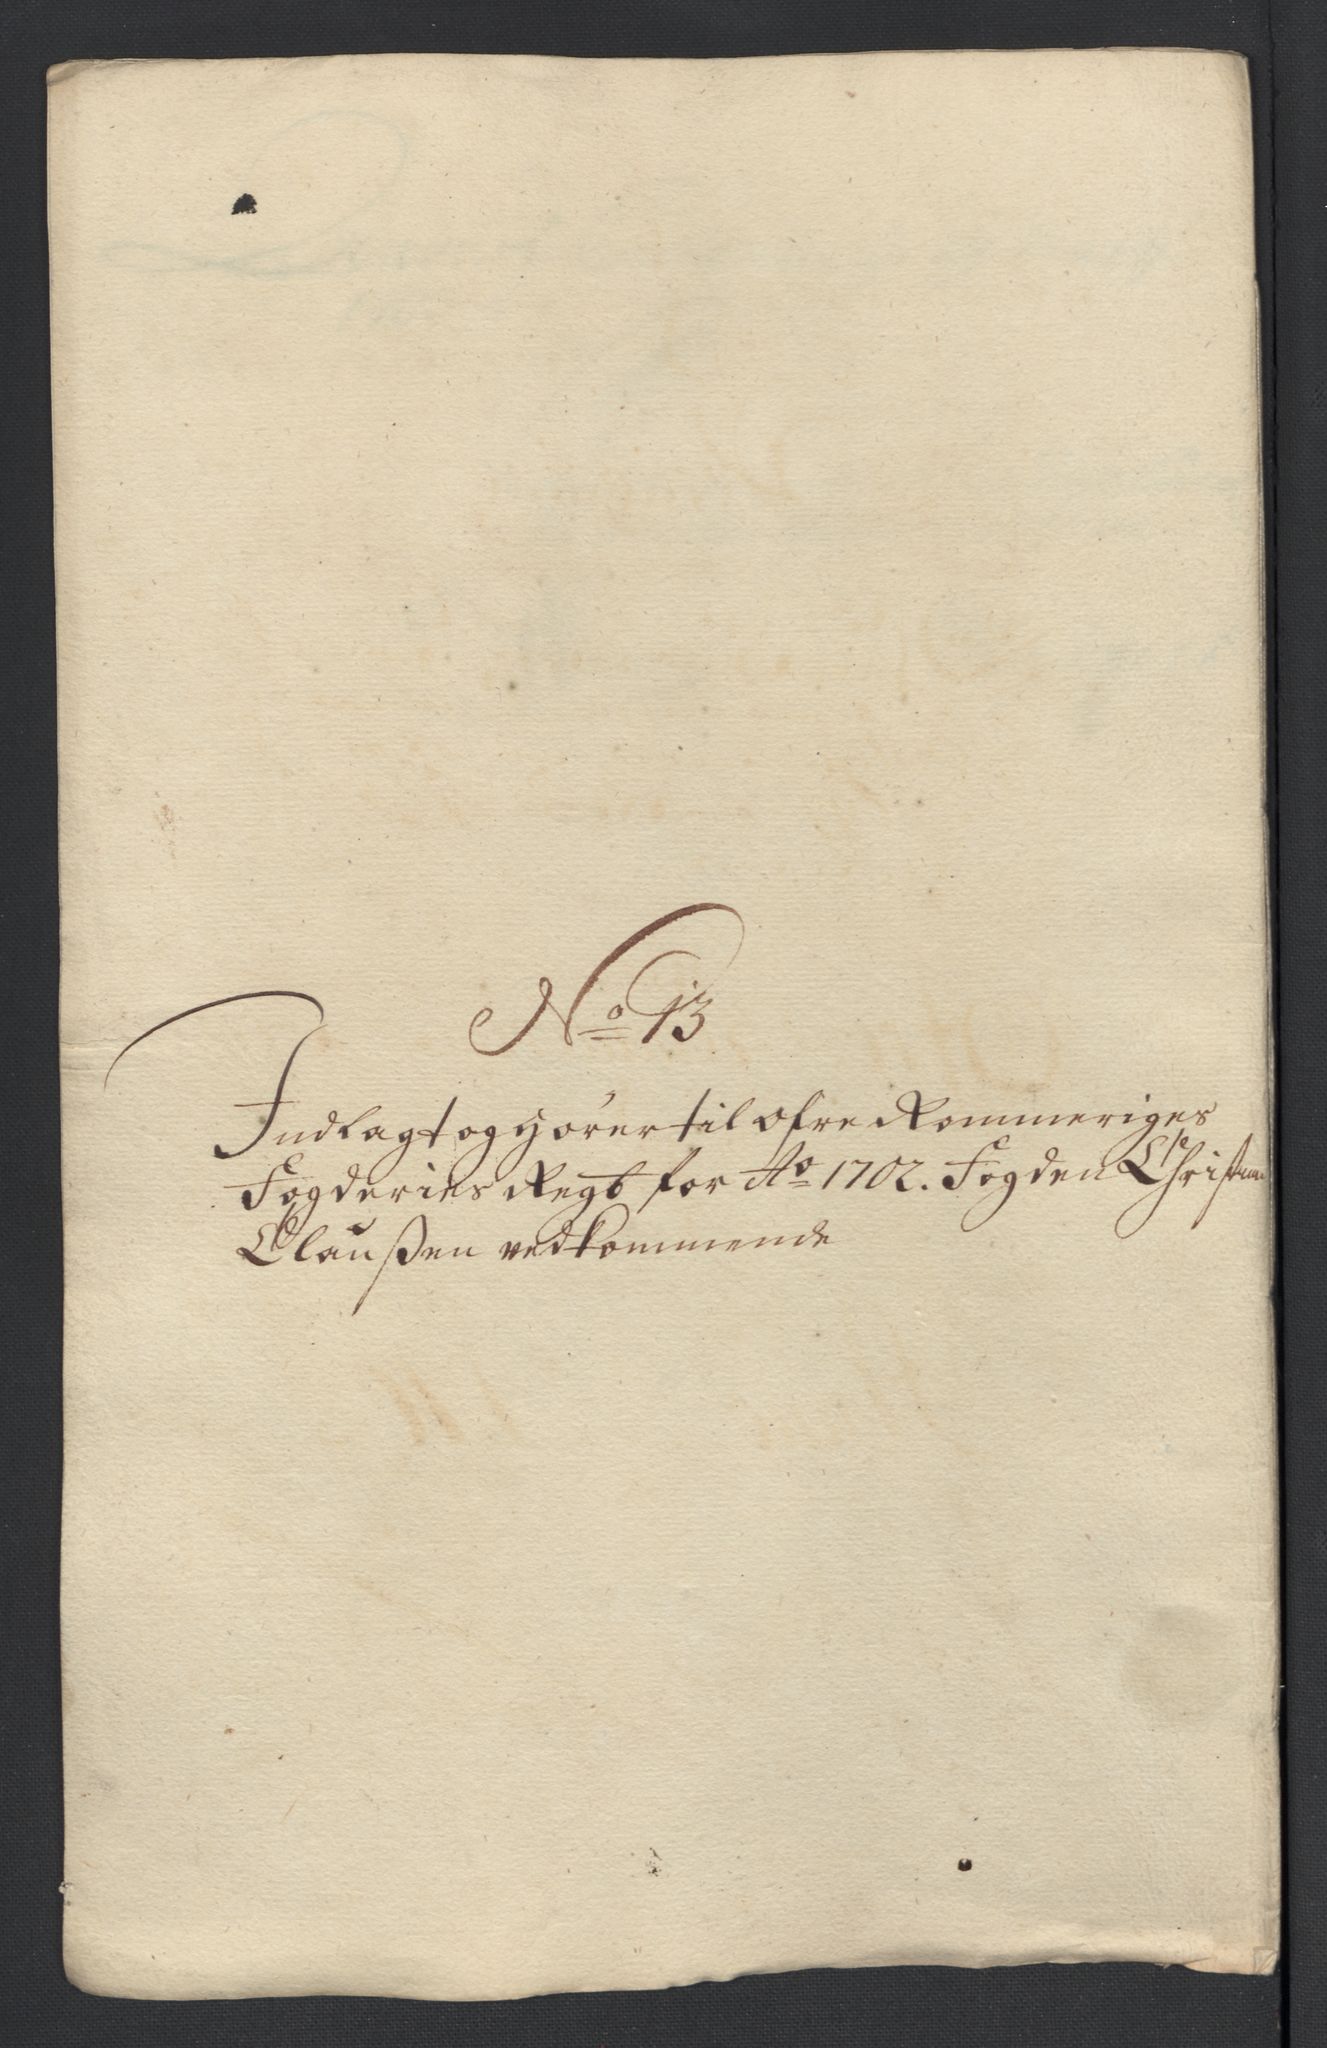 No 13
Indlagt og hörer til ofre Rommeriges
Fogderies Regb for Ao 1702. Fogden
Claußen vedkommende